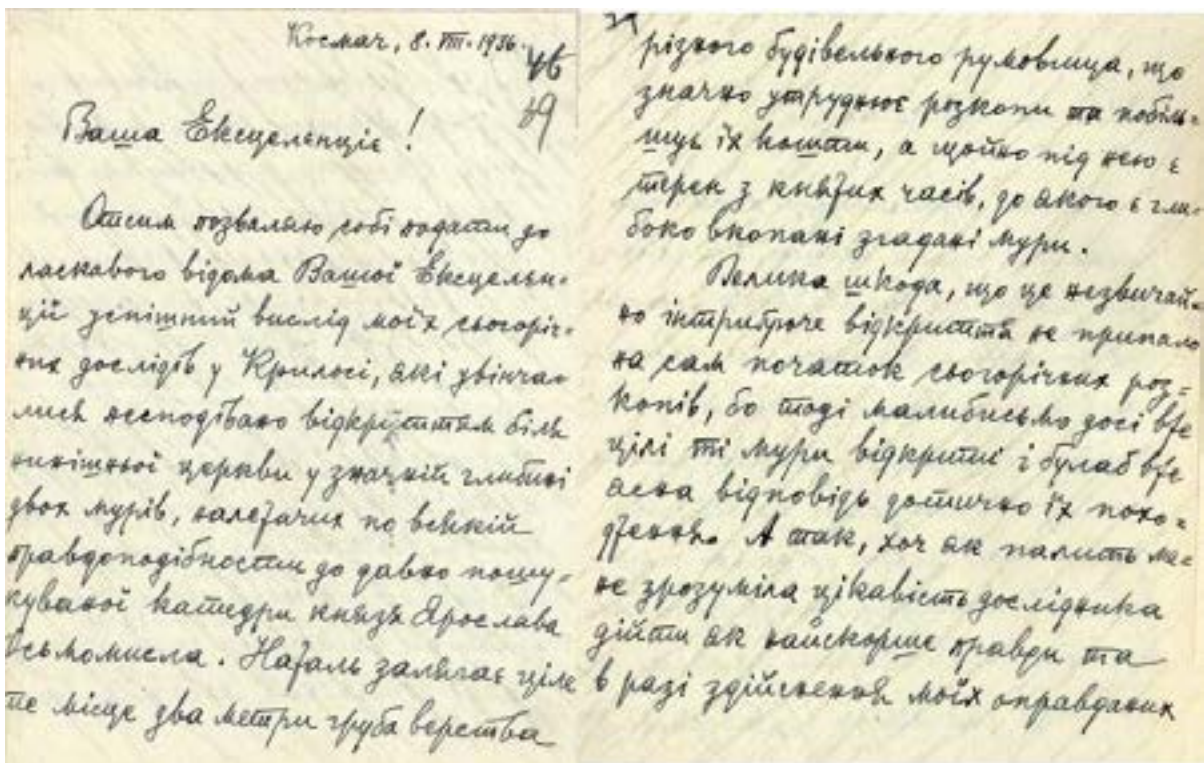 Космач, 8. VIII. 1936.
46
49
Ваша Ексцеленціє !
Отсим позваляю собі подати до
ласкавого відома Вашої Ексцелен-
ції успішний вислід моїх сьогоріч-
них дослідів у Крилосі, які звінча-
лися несподівано відкриттям біля
нинішньої церкви у значній глибині
двох мурів, належачих по всякій
правдоподібности до давно пошу-
куваної катедри князя Ярослава
Осьмомисла. Нажаль залягає ціле
те місце два метри груба верства
різного будівельного румовища, що
значно утруднює розкопи та побіль-
шує їх кошти, а щойно під нею є
терен з княжих часів, до якого є гли-
боко вкопані згадані мури.
Велика шкода, що це незвичай-
но інтригуюче відкриття не припало
на сам початок сьогорічних роз-
копів, бо тоді малибисьмо досі вже
цілі ті мури відкриті і булаб вже
ясна відповідь дотично їх похо-
дження. А так, хоч як палить ме-
не зрозуміла цікавість дослідника
дійти як найскорше правди та
в разі здійснення моїх оправданих